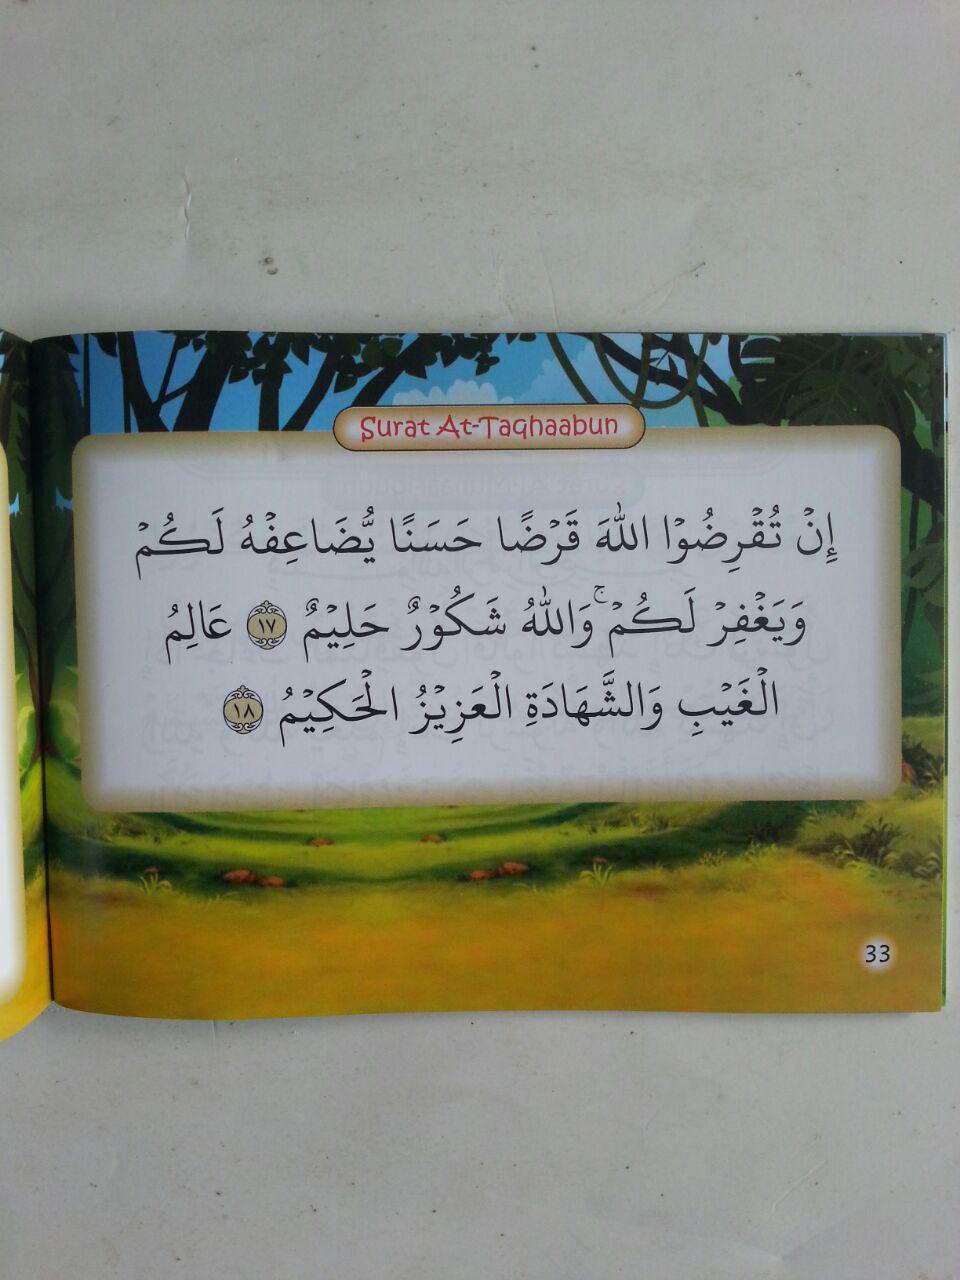 Surat At-Taghaabun
إِنْ تُقْرِضُوْا اللّٰهَ قَرْضًا حَسَنًا يُّضَاعِفْهُ لَكُمْ
وَيَغْفِرْ لَكُمْ ۚ وَاللّٰهُ شَكُوْرٌ حَلِيْمٌ ١٧ عَالِمُ
الْغَيْبِ وَالشَّهَادَةِ الْعَزِيْزُ الْحَكِيْمُ ١٨
33